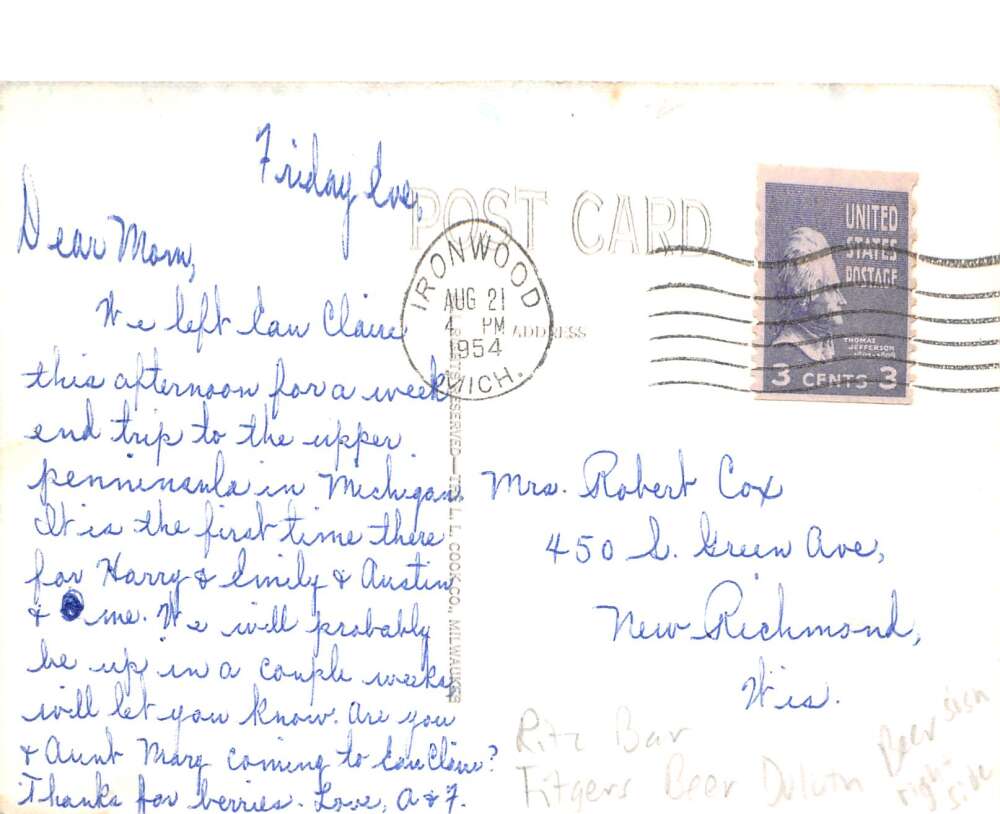 Friday Eve,
Dear Mom,
We left Eau Claire
this afternoon for a week
end trip to the upper
penninsula in Michigan.
It is the first time there
for Harry & Emily & Austin
& me. We will probably
be up in a couple weeks,
will let you know. Are you
& Aunt Marg coming to Eau Claire?
Thanks for berries. Love, A & F.
POST CARD
ADDRESS
IRONWOOD
AUG 21
4 PM
1954
MICH.
UNITED
STATES
POSTAGE
THOMAS
JEFFERSON
3 CENTS 3
RESERVED—THE L. L. COOK CO., MILWAUKEE
Mrs. Robert Cox
450 S. Green Ave,
New Richmond,
Wis.
Ritz Bar
Fitgers Beer Duluth
Beer sign
right
side